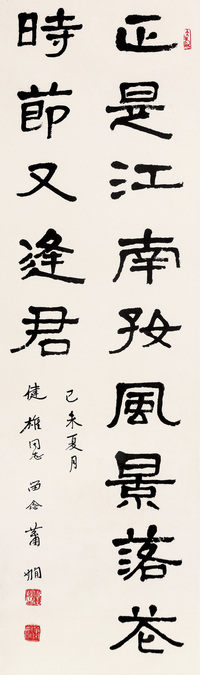 正是江南好風景落花
時節又逢君
己未夏月
健雄同志 西念 蕭嫻